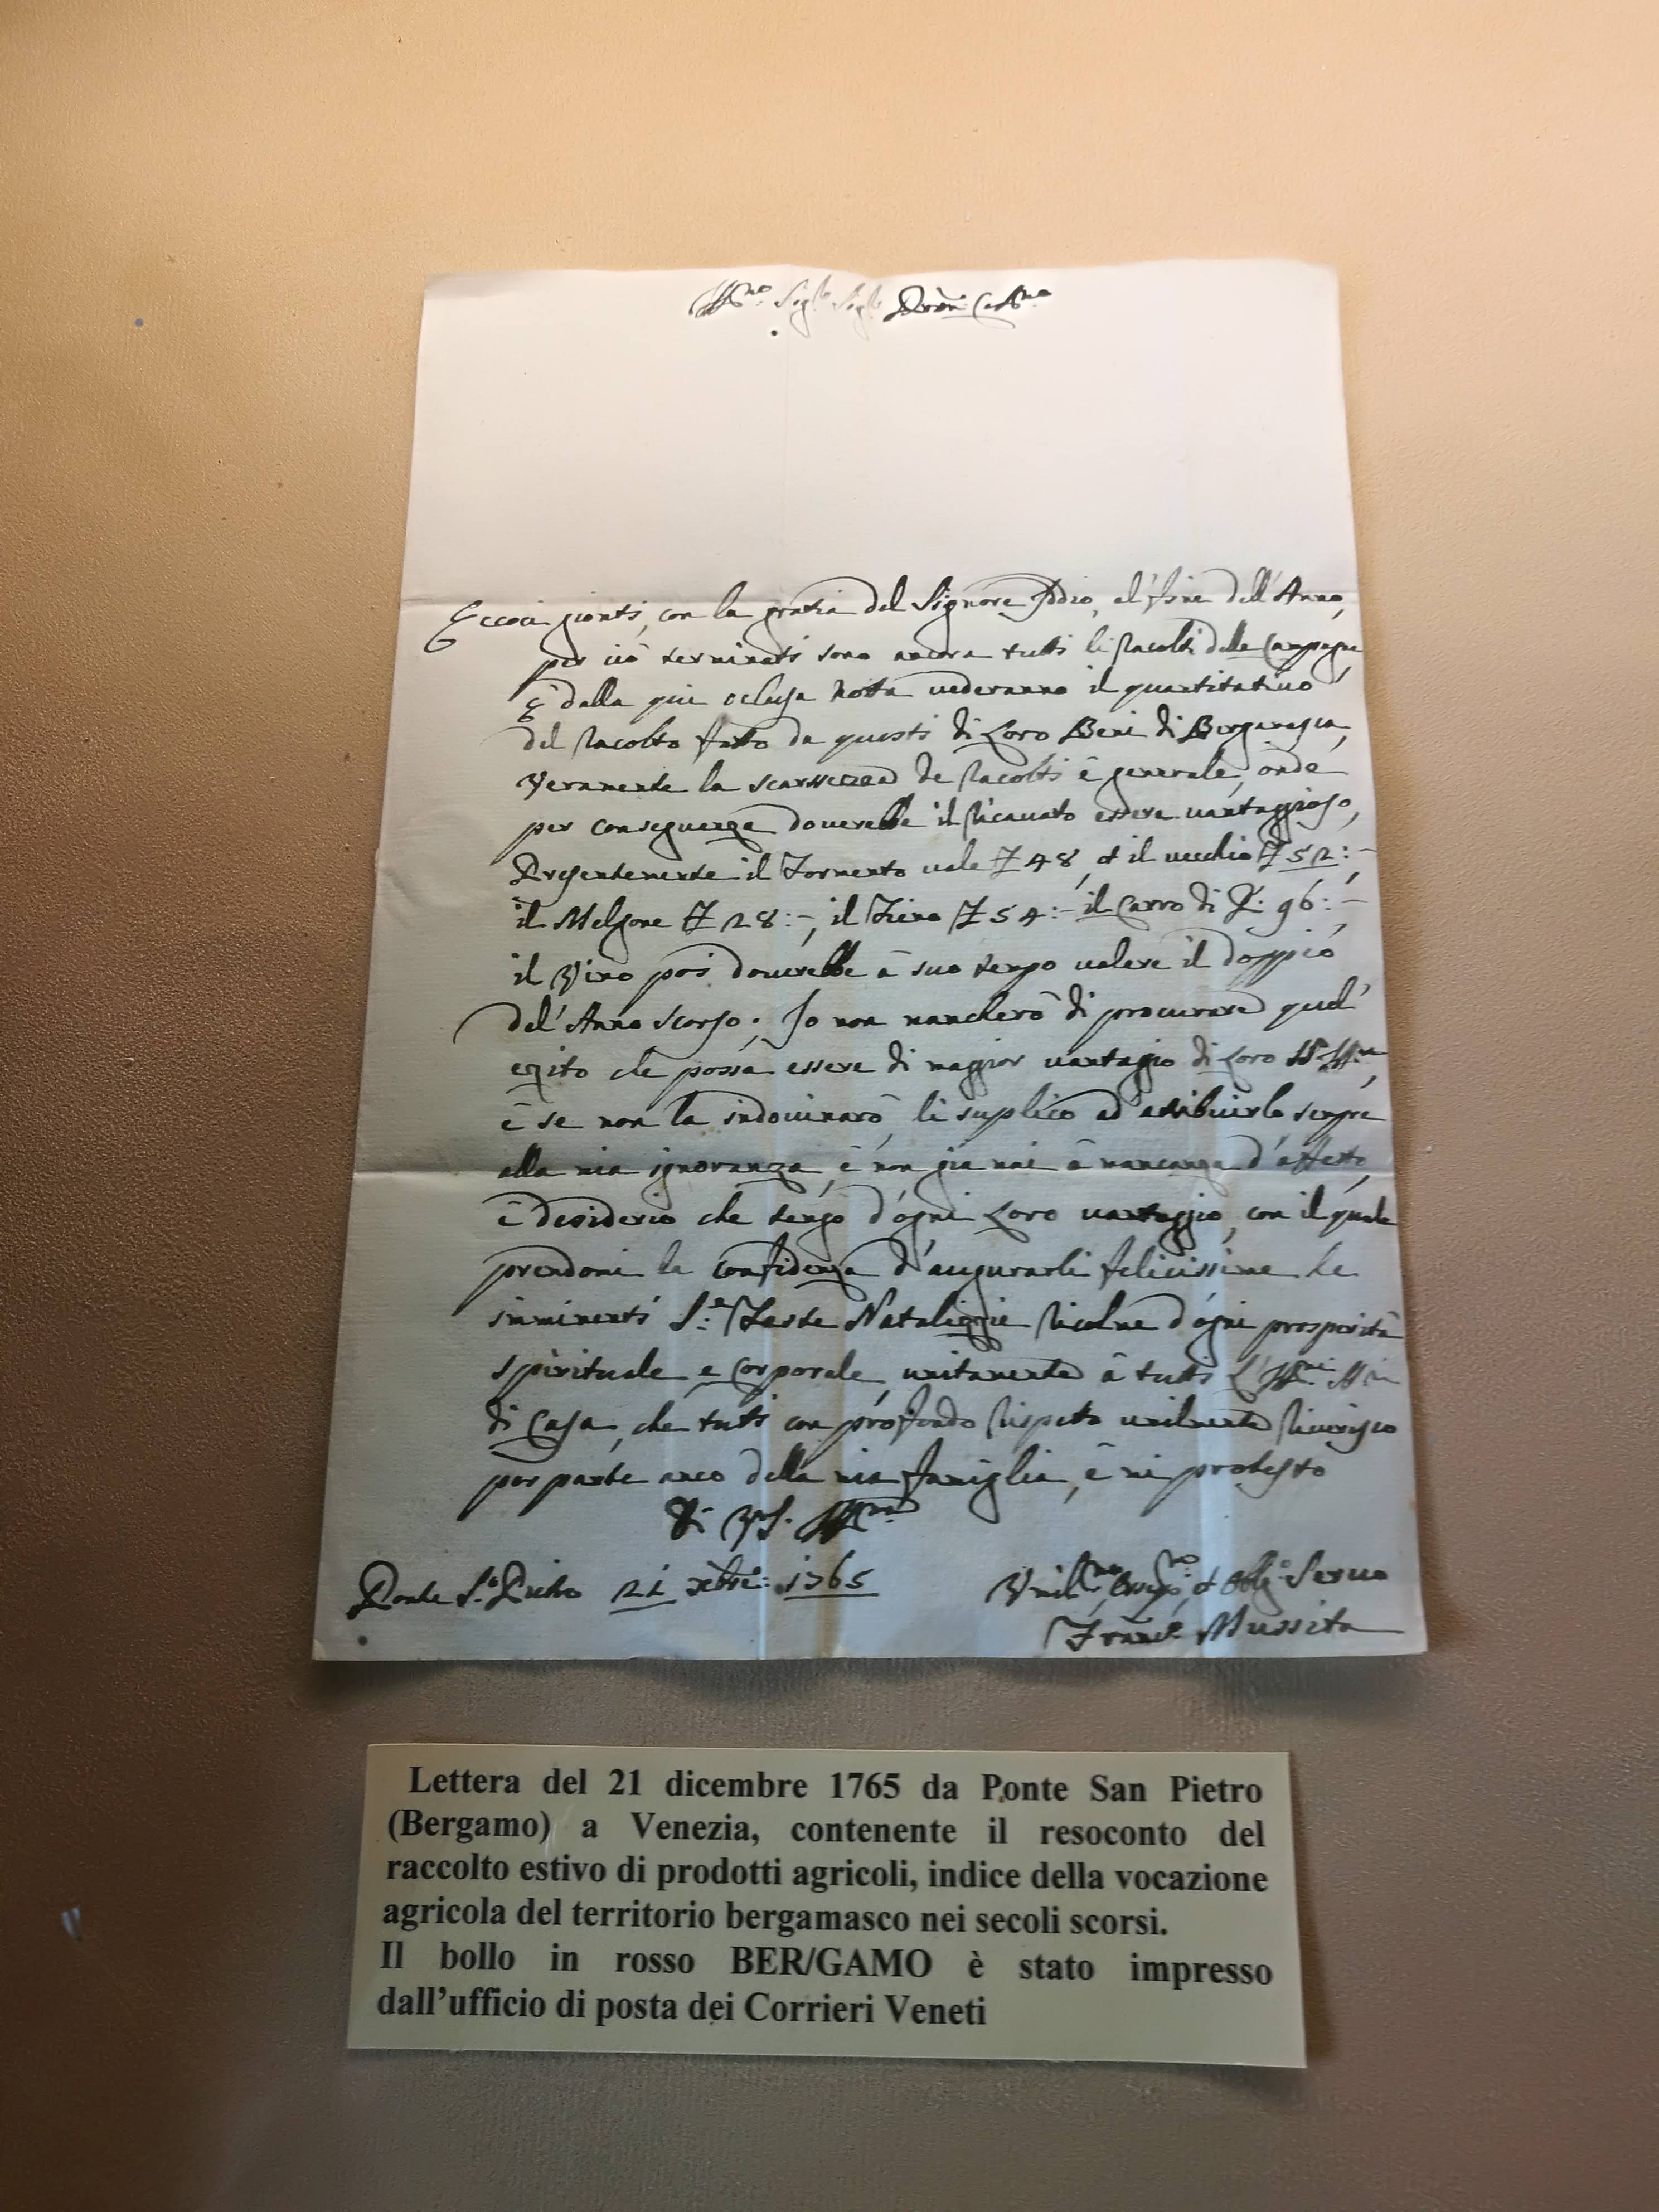 Eccoci gionti, con la gratia del Signore Iddio, al fine dell'Anno,
per ciò terminati sono ancora tutti li Racolti delle Campagne
è dalla qui oclusa Notta vederanno il quantitativo
del Racolto fatto da questi di Loro Beni di Bergamasca,
Veramente la scarsezza de Racolti è generale, onde
per conseguenza doverebbe il Ricavato essere vantaggioso,
Presentemente il Formento vale £ 48, et il vecchio £ 52:-
il Melgone £ 28:-, il Fieno £ 54:- il Carro di P. 96:-
il Vino poi doverebbe à suo tempo valere il doppio
del'Anno scorso. Io non mancherò di procurare quel'
ezito che possa essere di maggior vantagio di Loro
è se non la indovinarò, li suplico ad' attribuirlo sempre
alla mia ignoranza, è non già mai à mancanza d'affetto,
è desiderio che tengo d'ogni Loro vantaggio, con il quale
prendomi la confidenza d'augurarli felicissime le
imminenti S.e Feste Nataliggie Ricolme d'ogni prosperità
spirituale e Corporale, unitamente à tutti
di Casa, che tutti con profondo Rispeto umilmente Riverisco
per parte anco della mia famiglia, è mi protesto
Ponte S.o Pietro 21 Xbre: 1765
Servo
Franc.o Mussita
Lettera del 21 dicembre 1765 da Ponte San Pietro
(Bergamo) a Venezia, contenente il resoconto del
raccolto estivo di prodotti agricoli, indice della vocazione
agricola del territorio bergamasco nei secoli scorsi.
Il bollo in rosso BER/GAMO è stato impresso
dall'ufficio di posta dei Corrieri Veneti